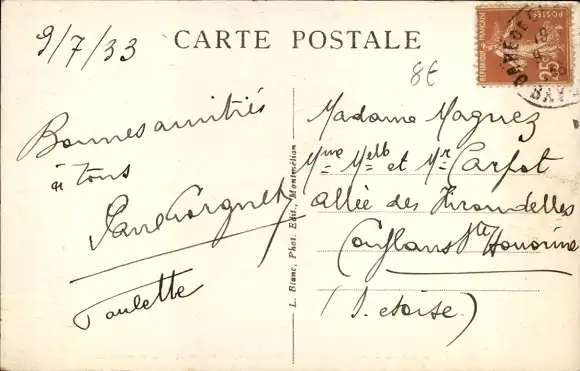 9/7/33
CARTE POSTALE
8€
REPUBLIQUE FRANÇAISE
POSTES
25
GARE DE
Bonnes amitiés
à tous
Paulette
L. Blanc, Phot. Edit., Montmélian
Madame Magnez
Mme et Mr Carpot
allée des Hirondelles
Conflans Ste Honorine
(S. et Oise)